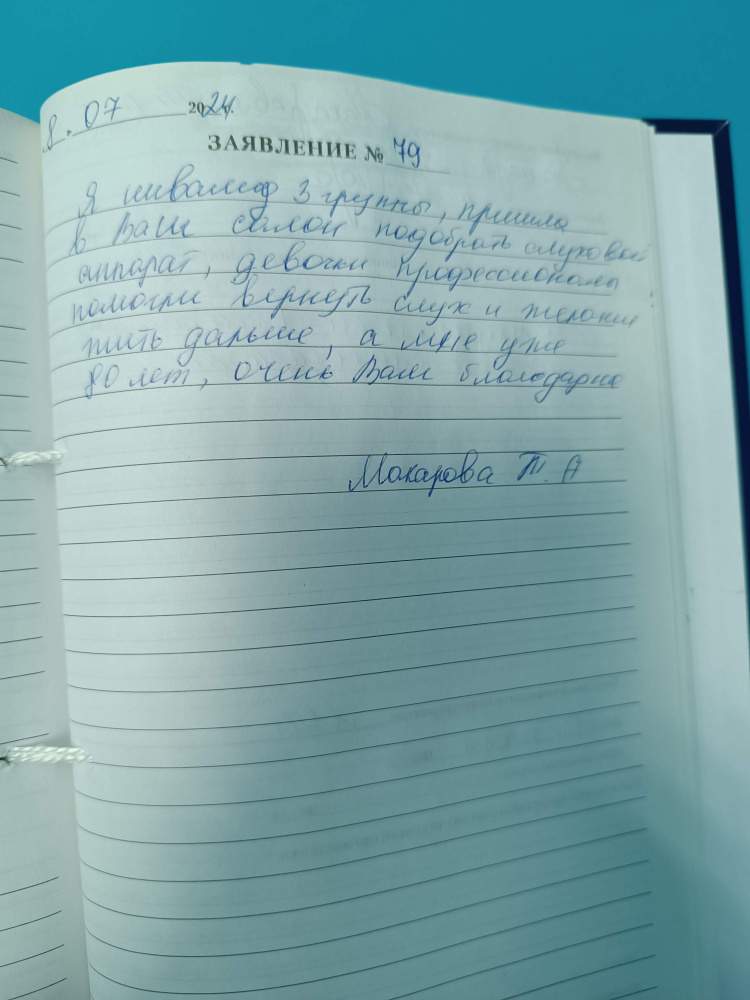 8. 07 2024 г.
ЗАЯВЛЕНИЕ № 79
Я инвалид 3 группы, пришла
в Ваш салон подобрать слуховой
аппарат, девочки профессионалы
помогли вернуть слух и желание
жить дальше, а мне уже
80 лет, очень Вам благодарна
Макарова Т. А